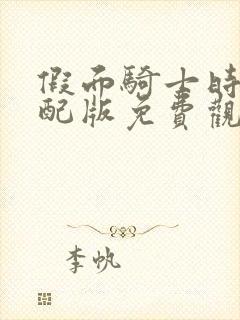 假面騎士時
配版免費觀
李帆